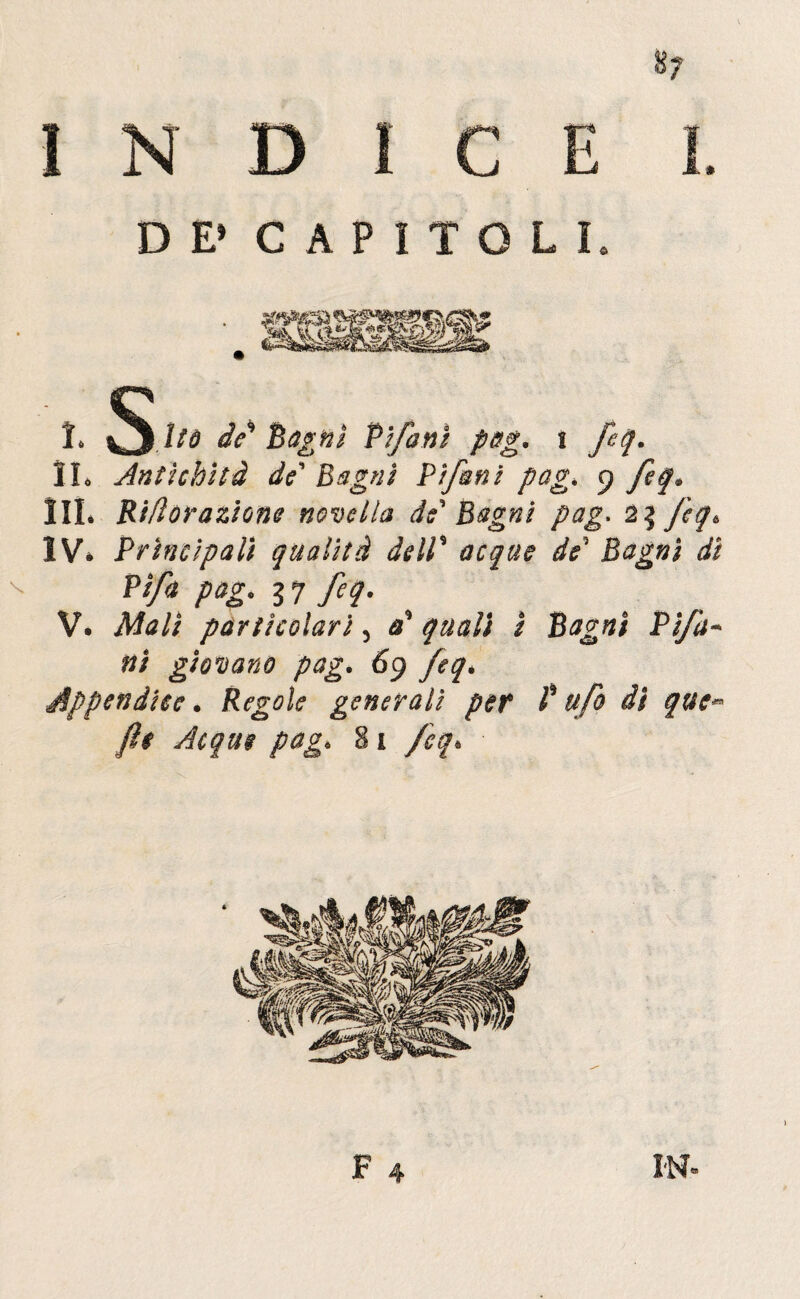 87
INDICE I.
DE' CAPITOLI.
I. Sito de' Bagni Pisani pag. 1 seq.
II. Antichità de' Bagni Pisani pag. 9 seq.
III. Ristorazione novella de' Bagni pag. 23 seq.
IV. Principali qualità dell' acque de' Bagni di
Pisa pag. 37 seq.
V. Mali particolari, a' quali i Bagni Pisa-
ni giovano pag. 69 seq.
Appendice. Regole generali per l' uso di que-
ste Acque pag. 81 seq.
F 4 IN-